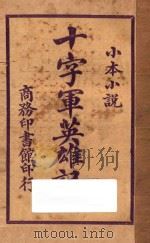 小本小說
十字軍英雄記
商務印書館印行
www.mtoou.info
mtoou.com